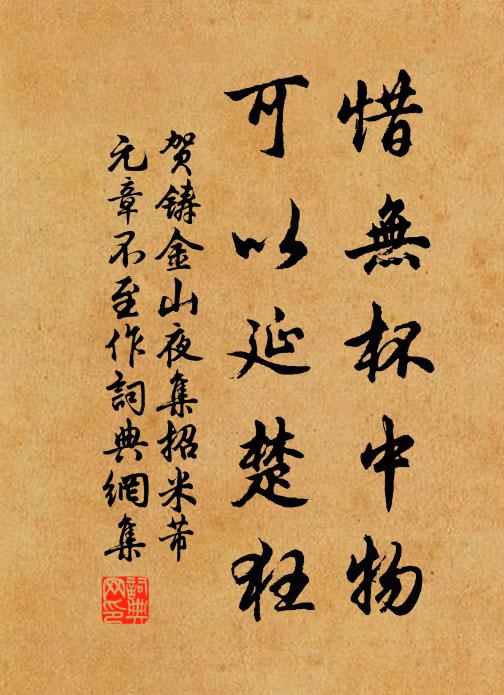 惜無杯中物
可以延楚狂
贺鑄金山夜集招米芾
元章不至作詞典網集
詞典網印